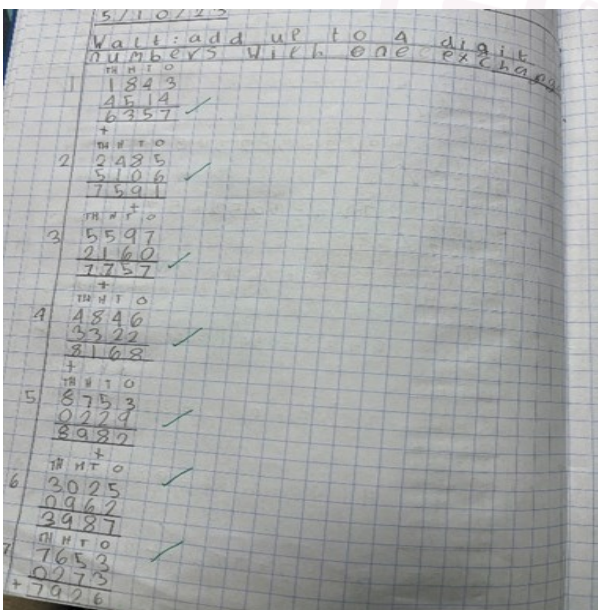 5/10/23
Walt: add up to 4 digit
numbers with one exchange
TH H T O
1 1843
4514
6357
+
TH H T O
2 2485
5106
7591
+
TH H T O
3 5597
2160
7757
+
TH H T O
4 4846
3322
8168
+
TH H T O
5 8753
0229
8982
+
TH H T O
6 3025
0962
3987
TH H T O
7 7653
0273
+ 7926